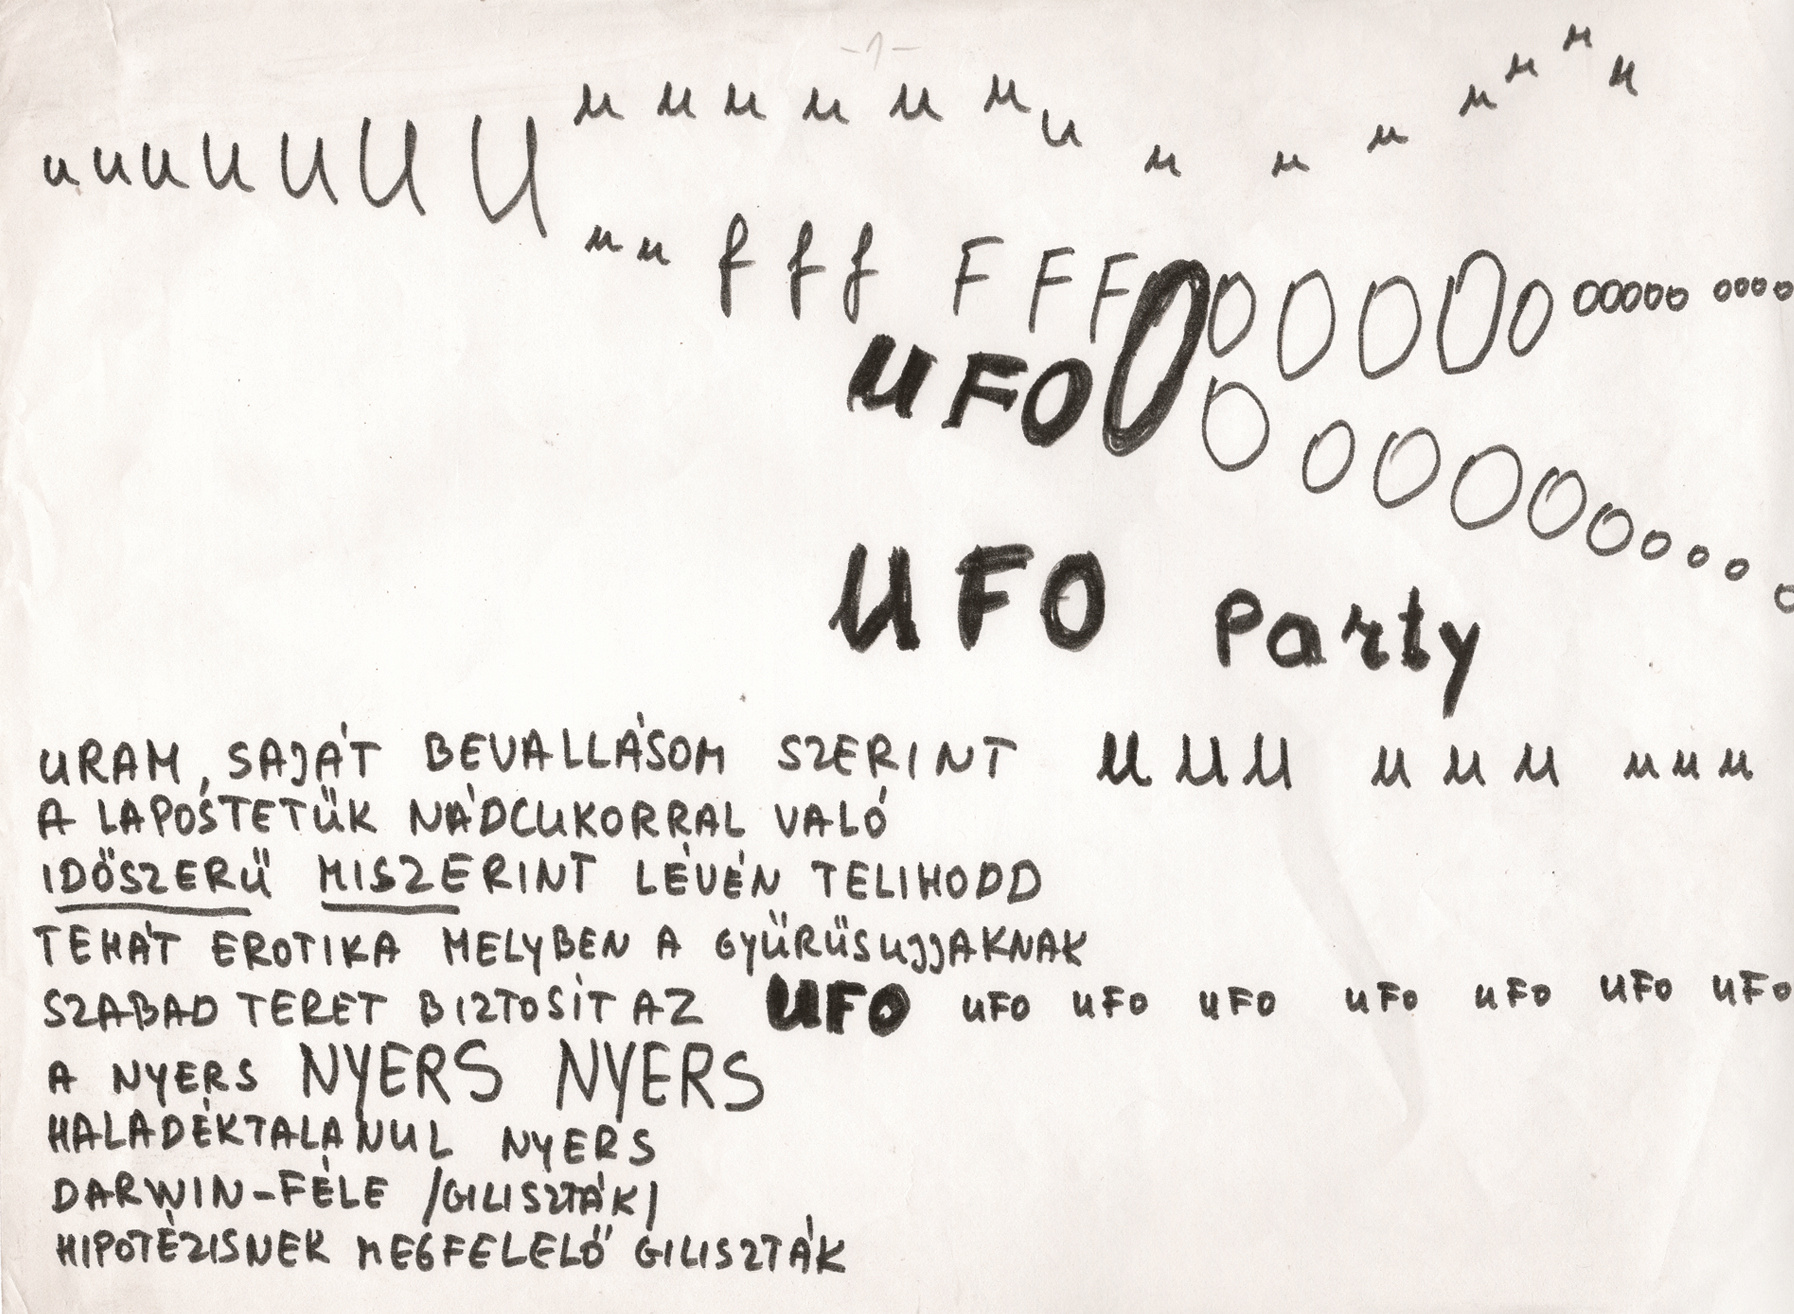 -1-
u u u u u u u u u u u u u u u u u u u u u
u u f f f F F F O O O O O O o o o o o o o o o
UFO O O O O O O o o o o o
UFO Party
URAM, SAJÁT BEVALLÁSOM SZERINT u u u u u u u u u
A LAPOSTETŰK NÁDCUKORRAL VALÓ
IDŐSZERŰ MISZERINT LÉVÉN TELIHODD
TEHÁT EROTIKA MELYBEN A GYŰRŰSUJJAKNAK
SZABAD TERET BIZTOSÍT AZ UFO UFO UFO UFO UFO UFO UFO UFO
A NYERS NYERS NYERS
HALADÉKTALANUL NYERS
DARWIN-FÉLE /GILISZTÁK/
HIPOTÉZISNEK MEGFELELŐ GILISZTÁK